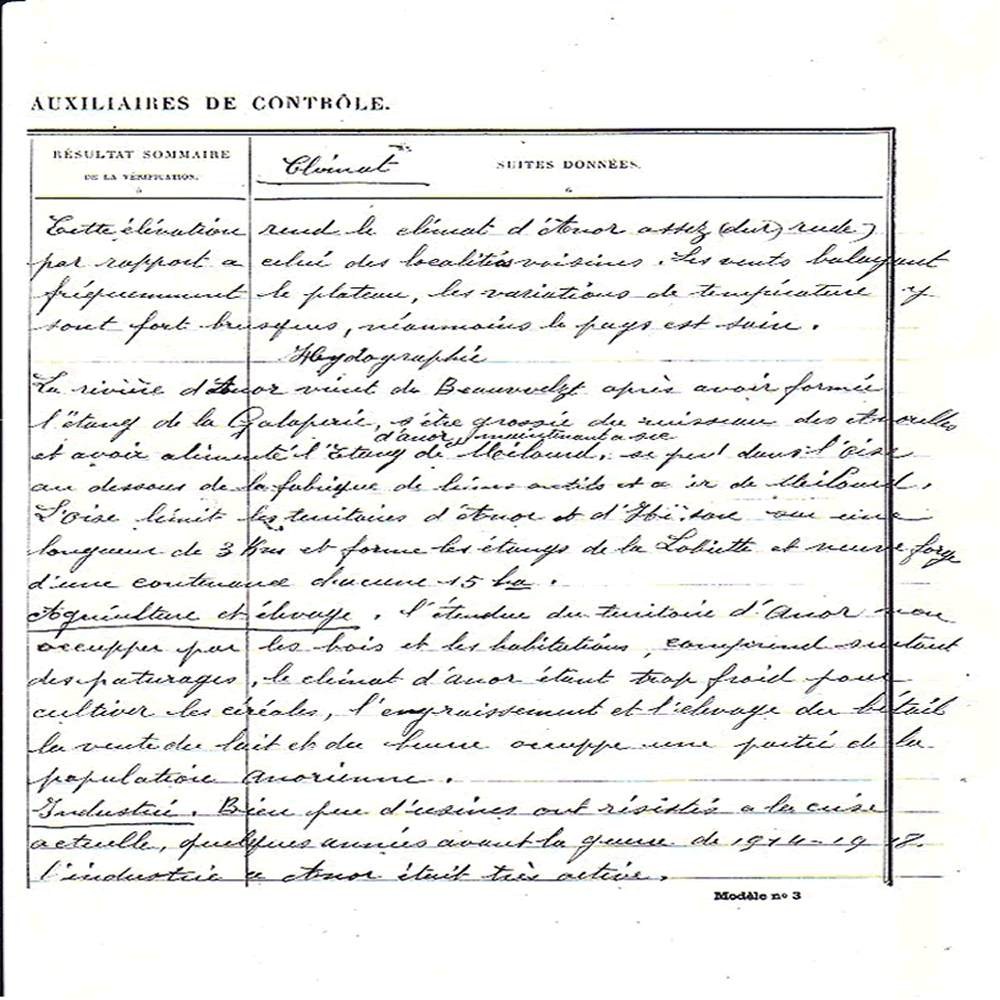 AUXILIAIRES DE CONTRÔLE.
RÉSULTAT SOMMAIRE
DE LA VÉRIFICATION.
Climat
SUITES DONNÉES.
Cette élévation rend le climat d'Anor assez (dur) rude)
par rapport a celui des localités voisines. Les vents balayant
fréquemment le plateau, les variations de température y
sont fort brusques, néanmoins le pays est sain.
Heydographie
La rivière d'Anor vient de Beauwelzt après avoir formée
l'étang de la Galoperie, s'être grossie du ruisseau des Anorelles
d'anor, maintenant a sec
et avoir alimenté l'Etang de Milourd, se perd dans l'Oise
au dessous de la fabrique de limes outils et a ir de Milourd.
L'Oise limit les territoires d'Anor et d'Hi;son sur une
longueur de 3 Kms et forme les étangs de la Lobiette et neuve forge
d'une contenance chacune 15 ha.
Agriculture et élevage. l'étendue du territoire d'Anor non
occupper par les bois et les habitations, comprend surtout
des paturages, le climat d'anor étant trop froid pour
cultiver les céréales, l'engraissement et l'élevage du bétail
la vente du lait et du beurre occuppe une partie de la
population anorienne.
Industrie. Bien que d'usines ont résistés a la crise
actuelle, quelques années avant la guerre de 1914-1918.
l'industrie a Anor était très active.
Modèle nº 3